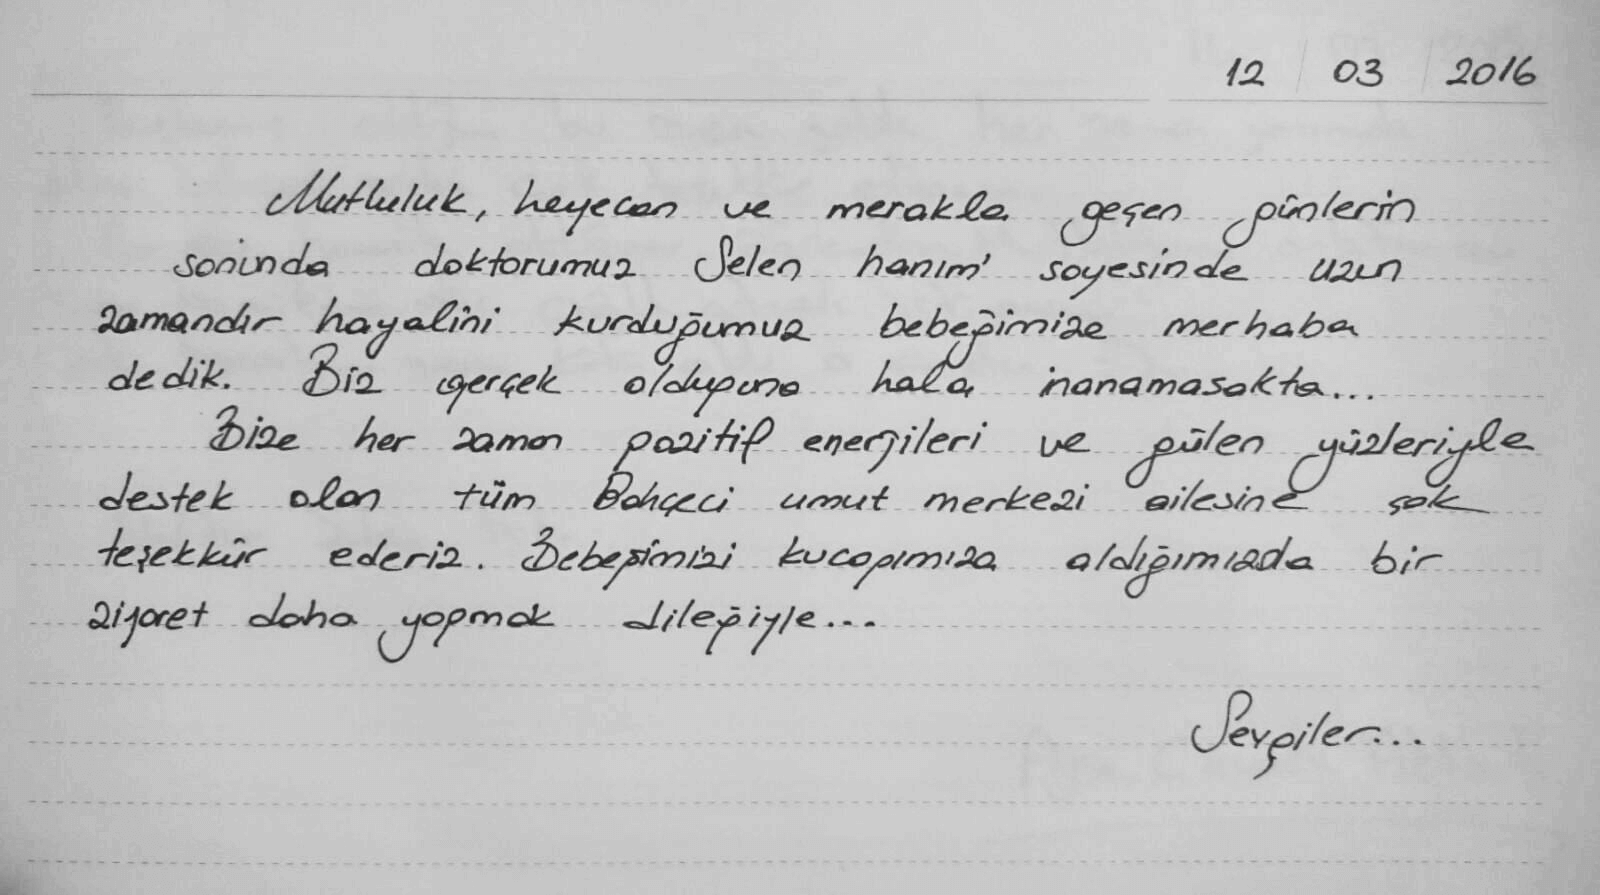 12 03 2016
Mutluluk, heyecan ve merakla geçen günlerin
sonunda doktorumuz Selen hanım' sayesinde uzun
zamandır hayalini kurduğumuz bebeğimize merhaba
dedik. Biz gerçek olduğuna hala inanamasakta...
Bize her zaman pozitif enerjileri ve gülen yüzleriyle
destek olan tüm Bahçeci umut merkezi ailesine çok
teşekkür ederiz. Bebeğimizi kucağımıza aldığımızda bir
ziyaret daha yapmak dileğiyle...
Sevgiler...